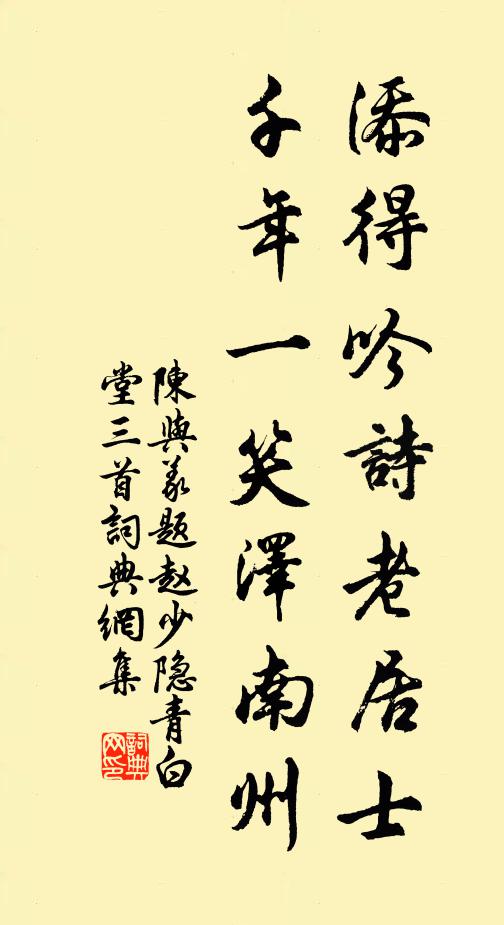 添得吟詩老居士
千年一笑澤南州
陳與義题赵少隐青白
堂三首詞典網集
詞典网印